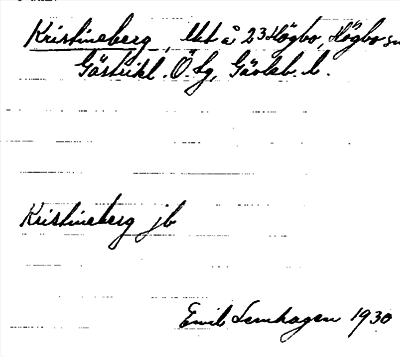 Kristineberg, lht å 23 Högbo, Högbo sn
Gästrikl. Ö. Tg, Gävleb. l.
Kristineberg jb
Emil Lernhagen 1930